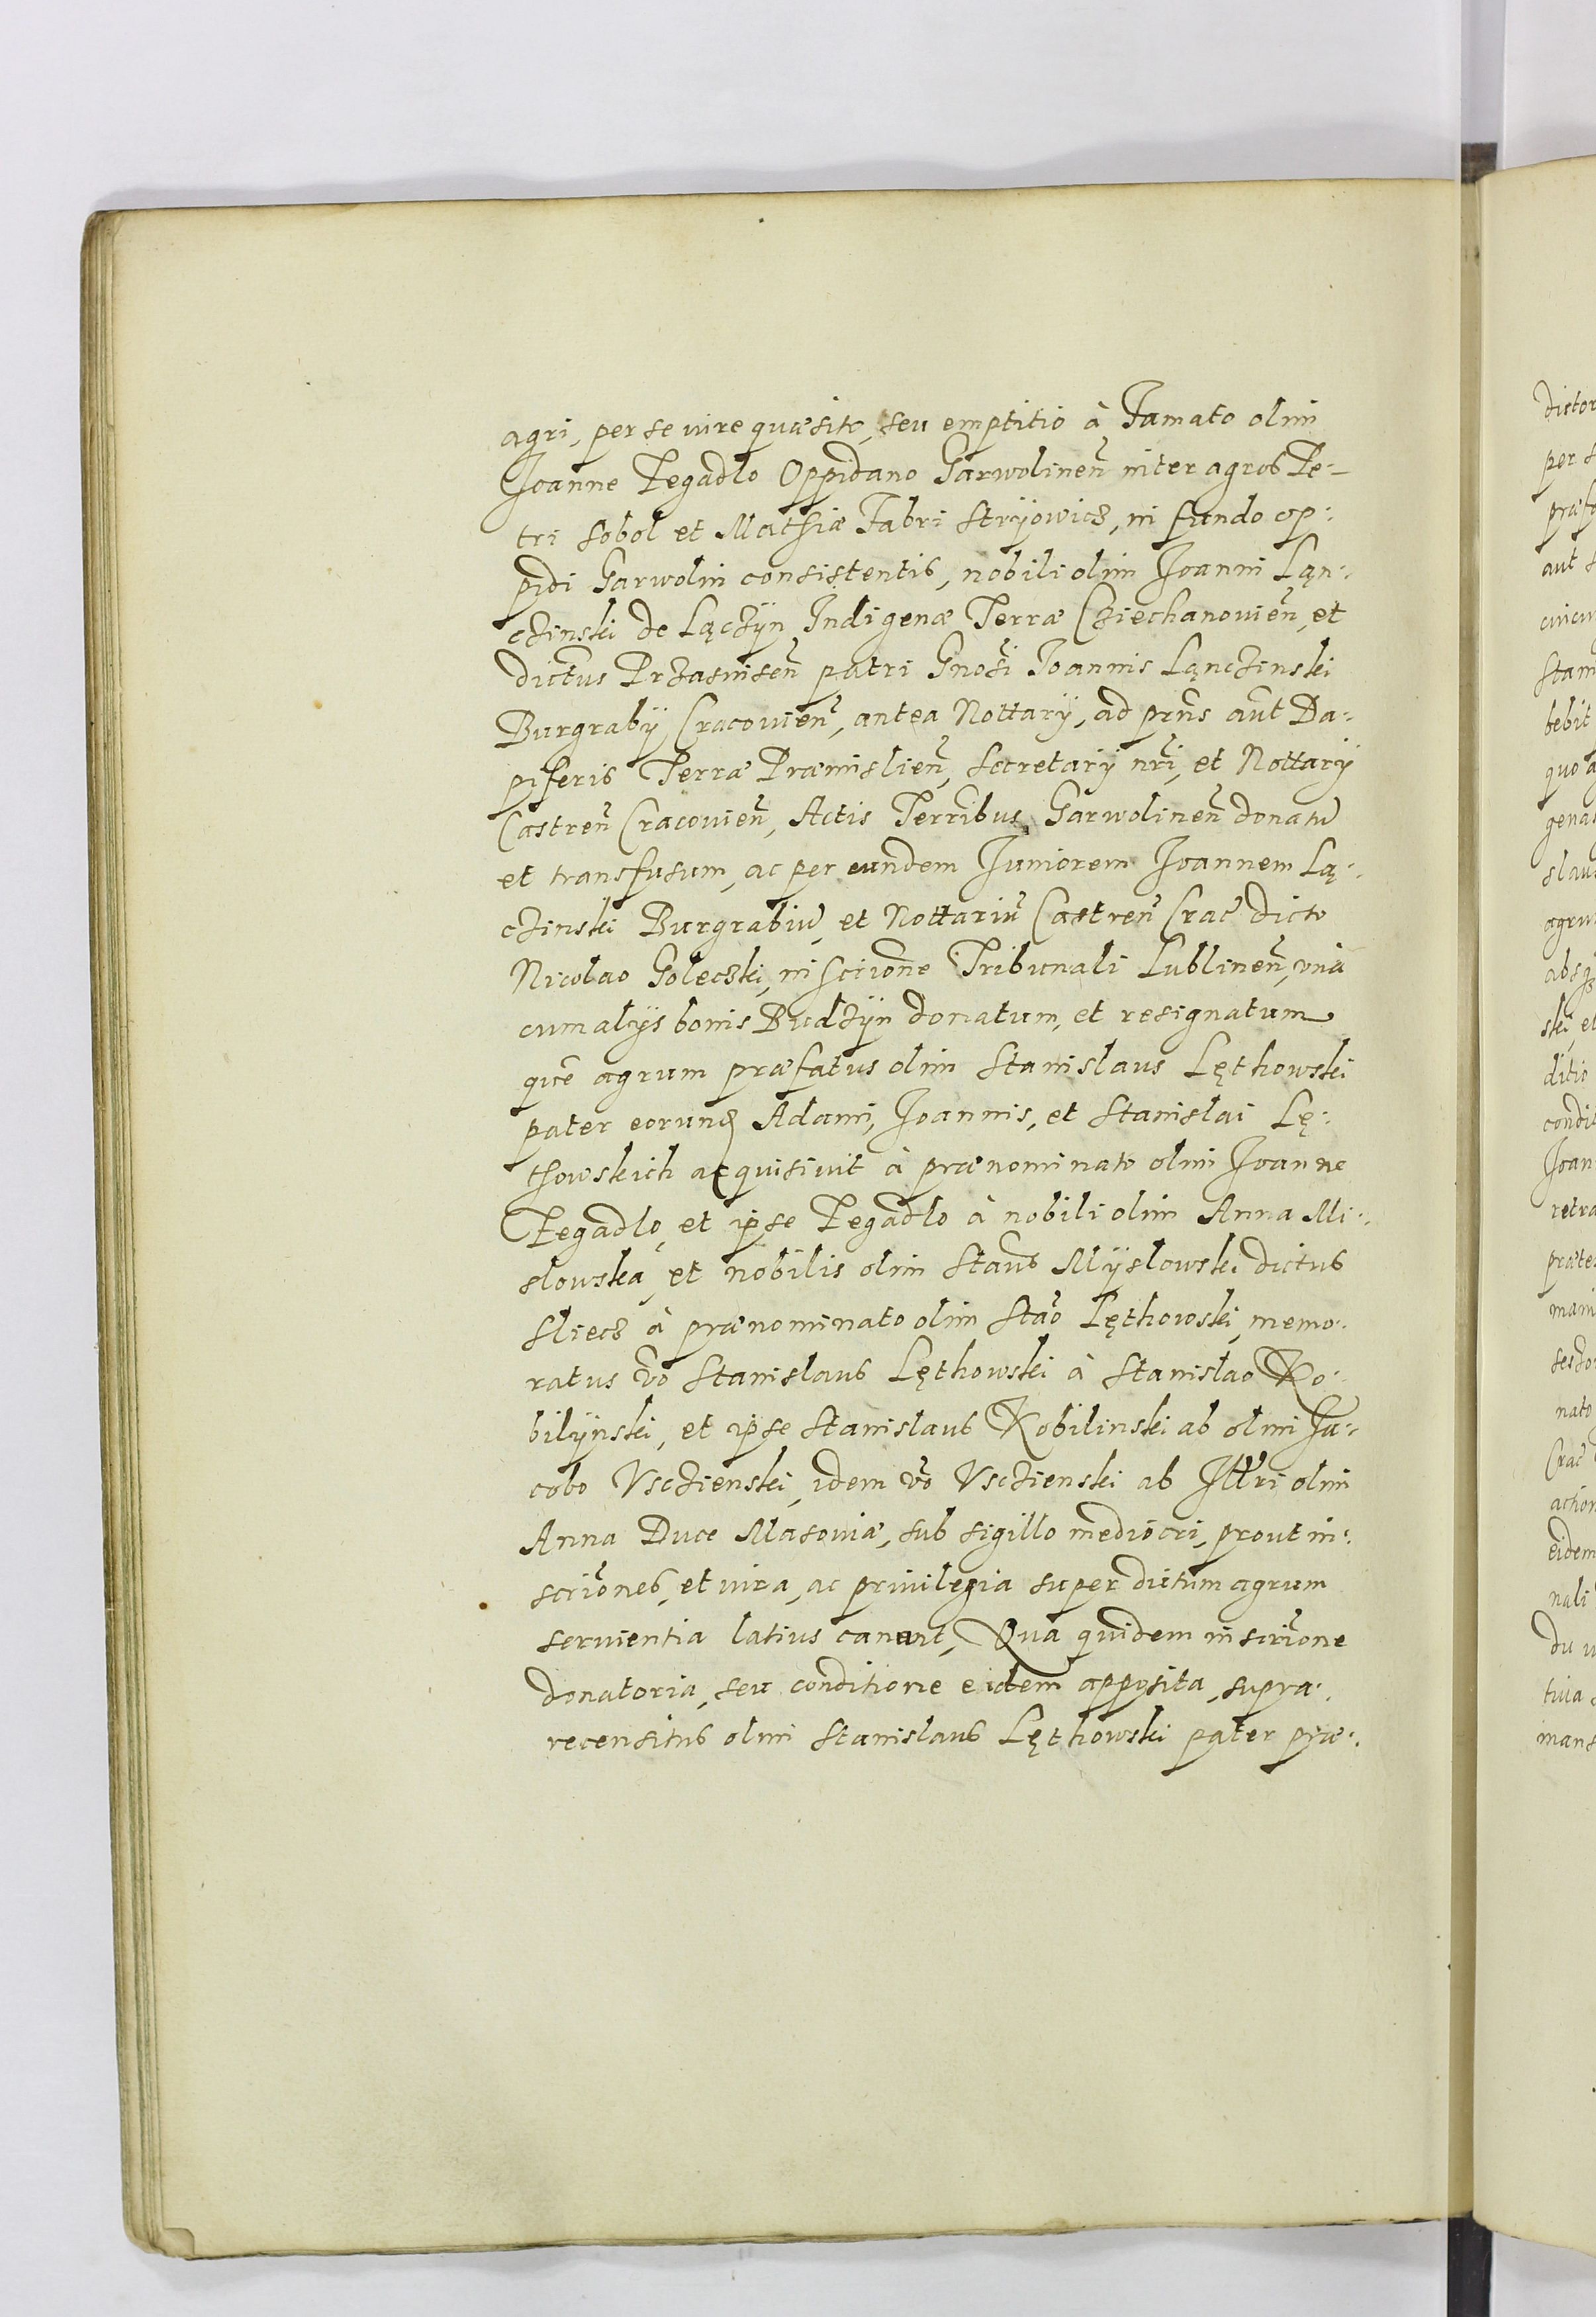 agri, per se iure quæsito, seu emptitio à Famato olim
Joanne Pegadlo Oppidano Garwolineñ inter agros Pe-
tri Sobol et Mathiæ Fabri Stryiowicz, in fundo op:
pidi Garwolin consistentis, nobili olim Joanni Łąn:
czinski de Łączÿn Indigenæ Terræ Cziechanovieñ, et
dictus Przasniseñ patri Gnosi Joannis Łąnczinski
Burgrabÿ Cracovieñ, antea Nottarÿ, ad prñs aut̃ Da:
piferis Terræ Præmislieñ, Secretarÿ nr̃i, et Nottarÿ
Castreñ Cracovieñ, Actis Terribus Garwolineñ donatũ
et transfusum, ac per eundem Juniorem Joannem Łą:
czinski Burgrabiũ, et Nottariũ Castreñ Crac̃ dicto
Nicolao Goleczki, in scrione Tribunali Lublineñ, vnà
cum alÿs bonis Budzÿn donatum, et resignatum
quẽ agrum præfatus olim Stanislaus Lęthowski
pater eorund Adami, Joannis, et Stanislai Lę:
thowskich acquisivit à prænominato olim Joanne
Pegadlo, et ipse Pegadlo à nobili olim Anna Mi:
slowska, et nobilis olim Staus Mÿslowski dictus
Sliecz à prænominato olim Stão Lęthowski, memo:
ratus võ Stanislaus Lęthowski à Stanislao Ko:
bilÿnski, et ipse Stanislaus Kobilinski ab olim Ja:
cobo Vsczienski, idem võ Vsczienski ab Illri olim
Anna Duce Masoviæ, sub sigillo mediocri, prout in:
scriones, et iura, ac privilegia super dictum agrum
servientia latius canunt, Qua quidem inscrione
donatoria, seu conditione eidem apposita, supra:
recensitus olim Stanislaus Lęthowski pater præ: